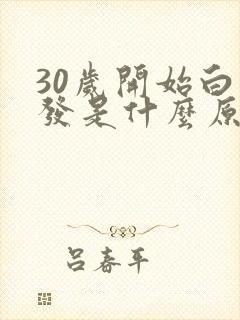 30歲開始白
發是什麼原
呂春平